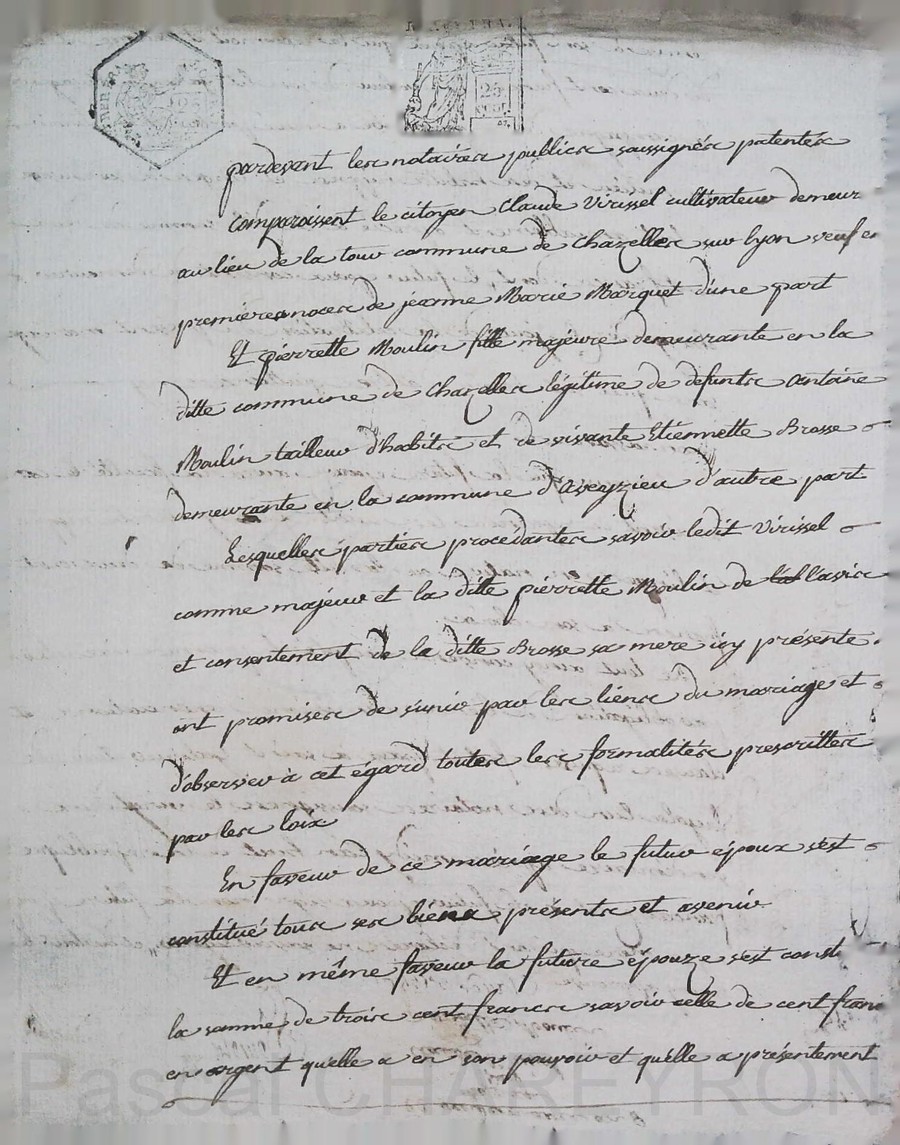 25
CENT
25
CENT.
pardevant les notaires publics soussignés patentés
comparoissent le citoyen Claude Virissel cultivateur demeur
au lieu de la tour commune de Chazelles sur lyon veuf en
premieres noces de jeanne Marie Marquet d'une part
Et pierrette Moulin fille majeure demeurante en la
ditte commune de Chazelles légitime de defunts Antoine
Moulin tailleur d'habits et de vivante Etiennette Brosse
demeurante en la commune d'Aveyzieu d'autre part
Lesquelles parties procedantes savoir ledit Virissel
comme majeur et la ditte pierrette Moulin de l'avis
et consentement de la ditte Brosse sa mere icy présente.
ont promises de s'unir par les liens du mariage et
d'observer à cet égard toutes les formalités prescrittes
par les loix
En faveur de ce mariage le futur époux s'est
constitué tous ses biens présents et avenir
Et en même faveur la future épouze s'est const
la somme de trois cent francs savoir celle de cent franc
en argent quelle a en son pouvoir et qu'elle a présentement
Pascal CHAREYRON